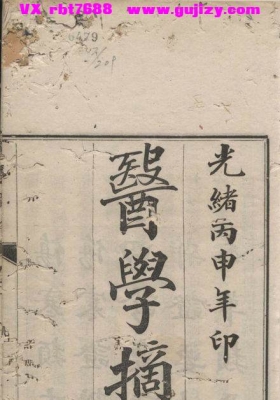 VX rbt7688 www.gujizy.com
光緒丙申年印
醫學摘